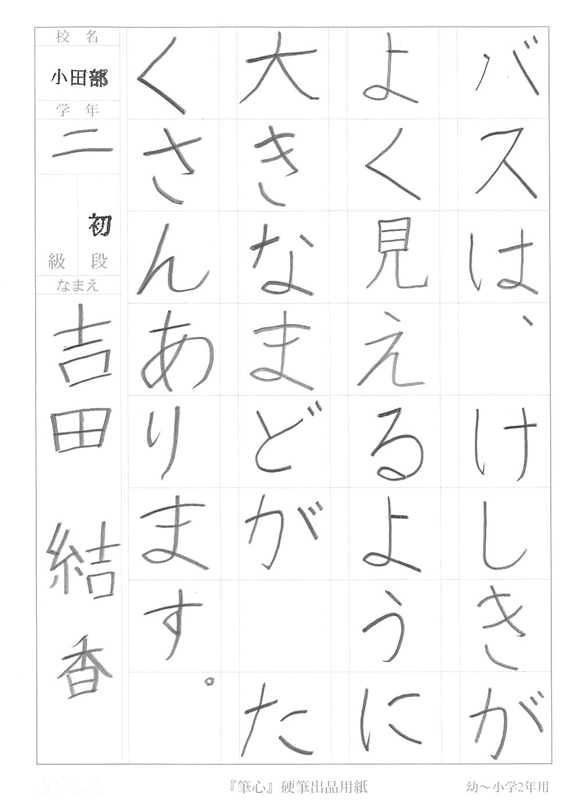 バスは、けしきが
よく見えるように
大きなまどが た
くさんあります。
校名
小田部
学年
二
初
級 段
なまえ
吉田 結香
『筆心』硬筆出品用紙
幼〜小学2年用